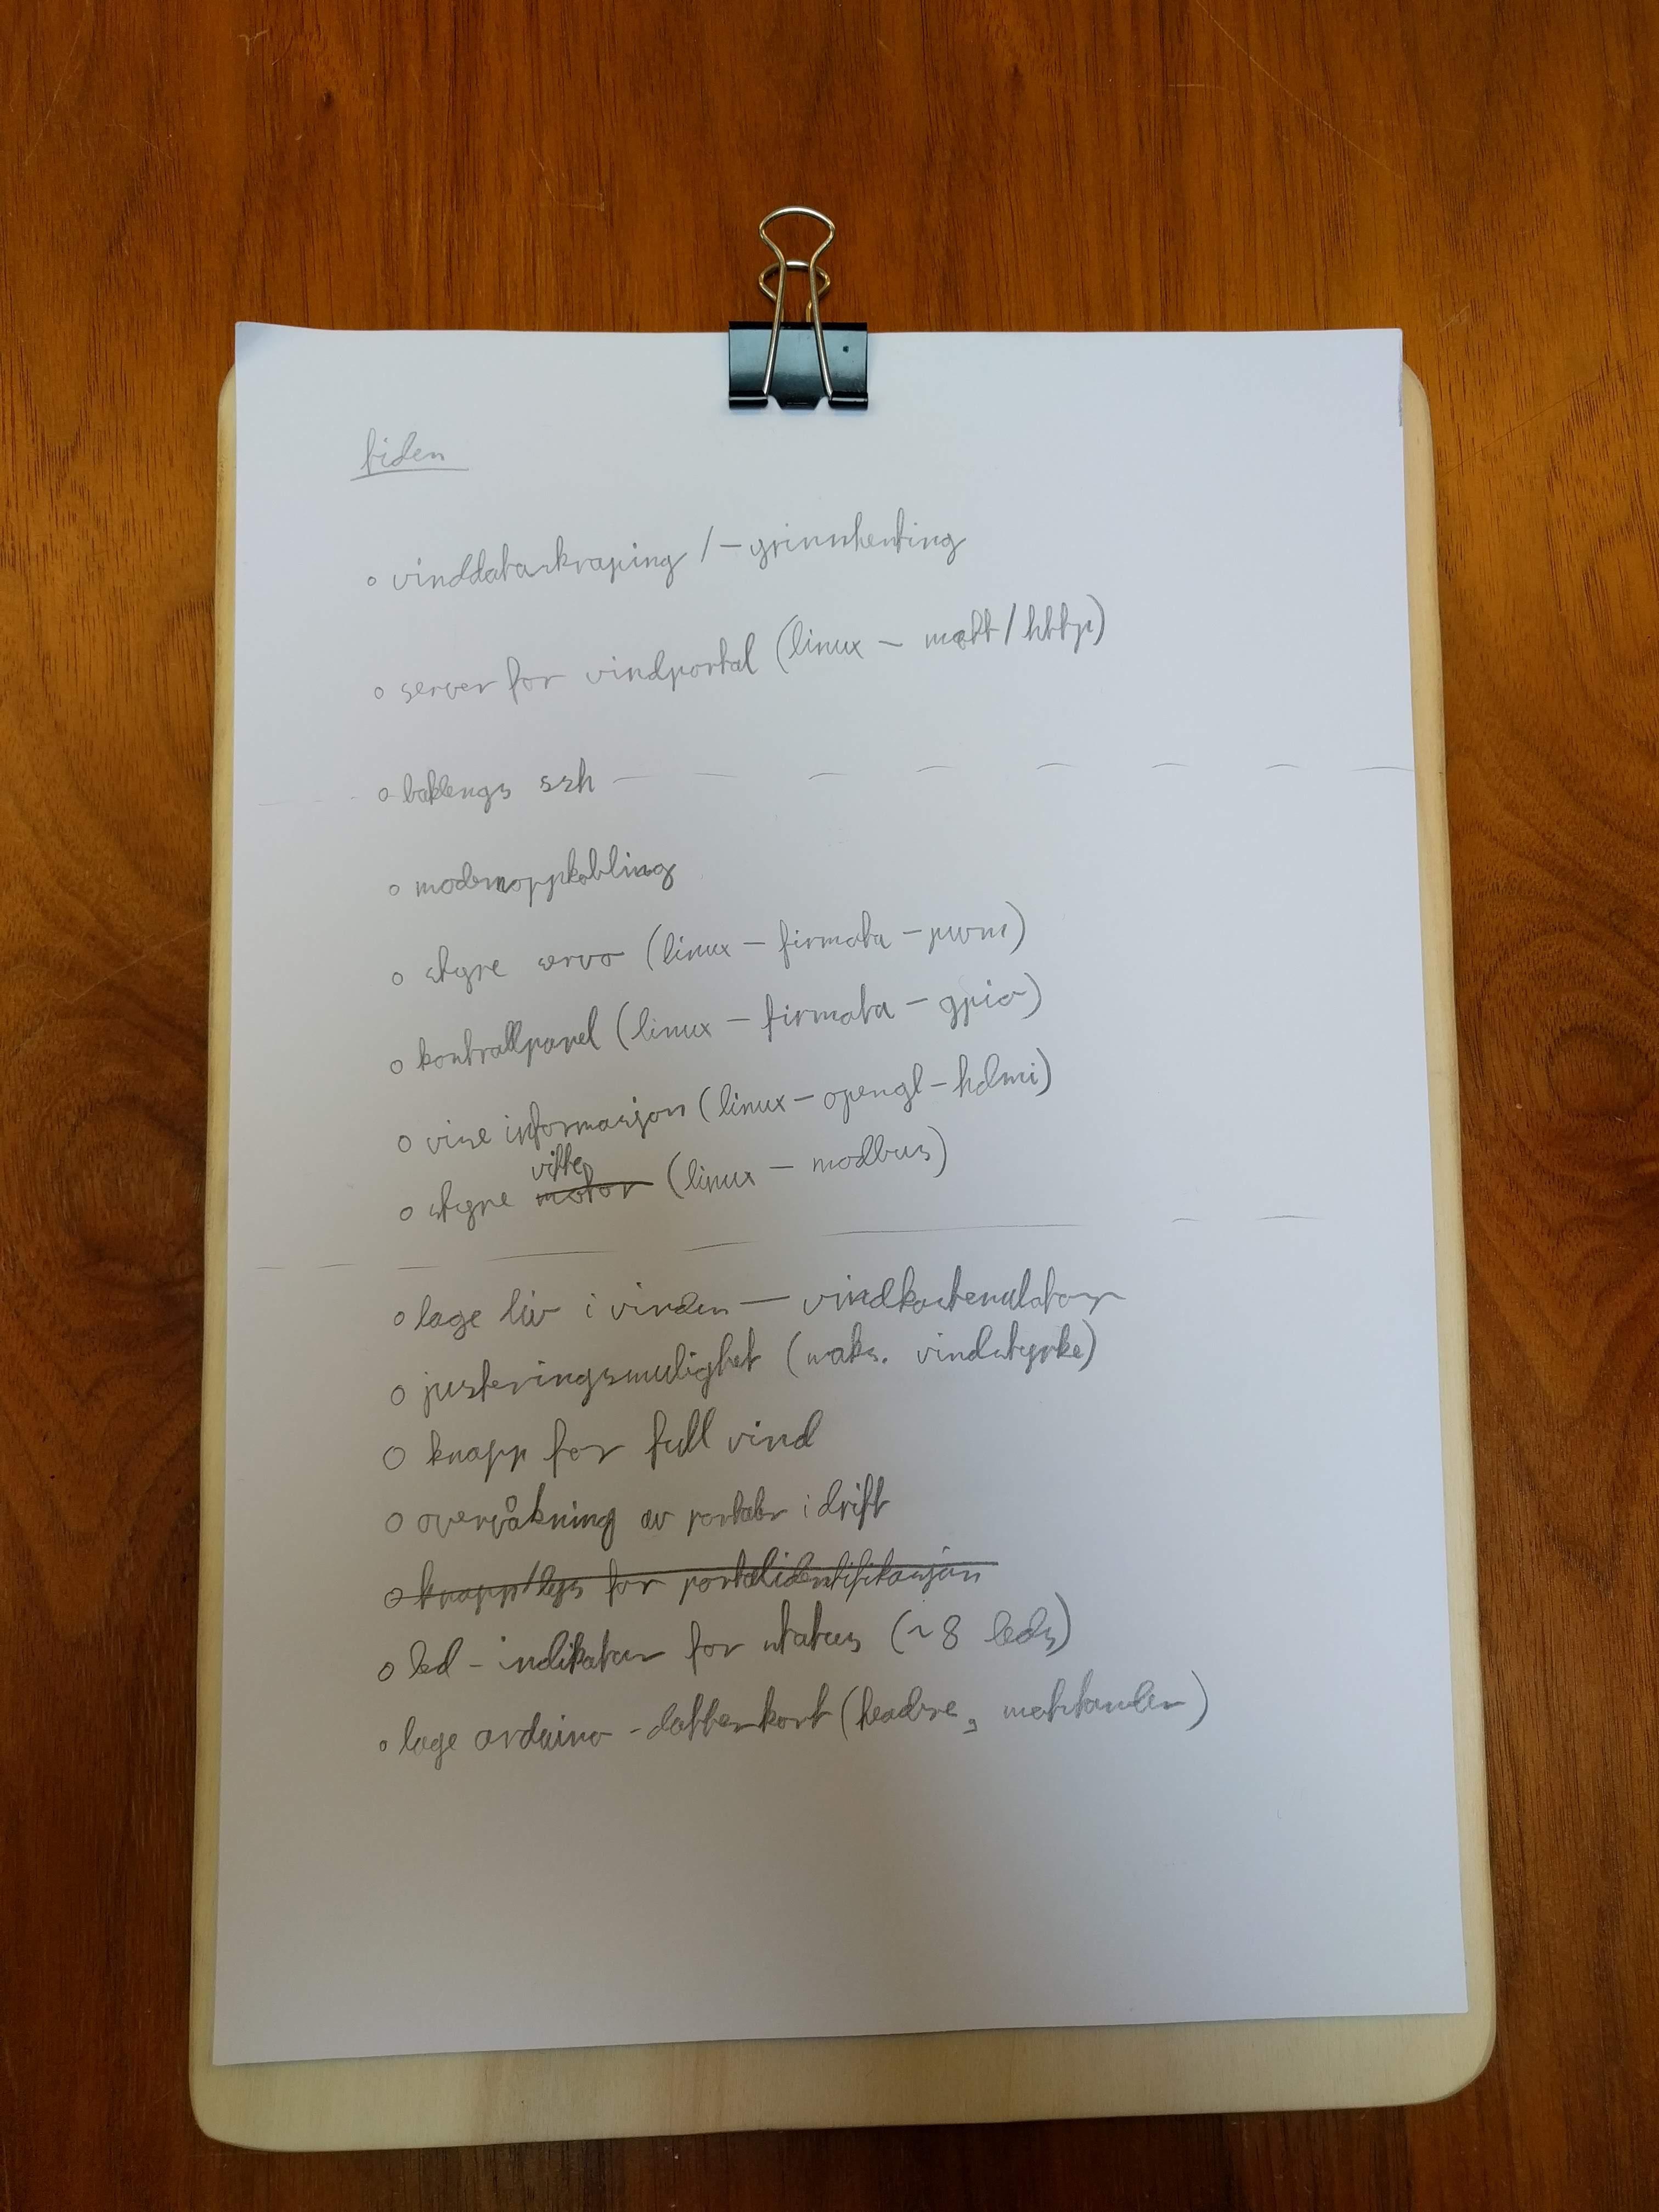 biden
○ vinddataskraping / - grinnhenting
○ server for vindportal (linux - mqtt / http)
○ baklengs ssh
○ modemoppkobling
○ styre servo (linux - firmata - pwm)
○ kontrollpanel (linux - firmata - gpio)
○ vise informasjon (linux - opengl - hdmi)
vifte
○ styre motor (linux - modbus)
○ lage liv i vinden - vindkastemulator
○ justeringsmulighet (maks. vindstyrke)
○ knapp for full vind
○ overvåkning av portaler i drift
○ knapp/lys for portalidentifikasjon
○ led - indikator for status (~8 leds)
○ lage arduino - datterkort (headre, motstander)